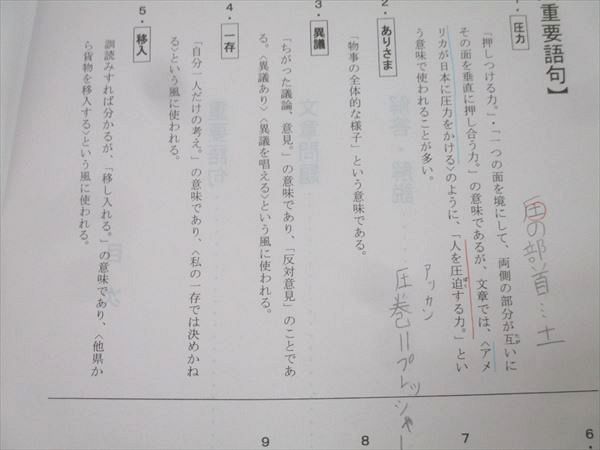 重要語句】
1・圧力
「押しつける力。」・「一つの面を境にして、両側の部分が互いに
その面を垂直に押し合う力。」の意味であるが、文章では、〈アメ
リカが日本に圧力をかける〉のように、「人を圧迫する力。」とい
う意味で使われることが多い。
圧の部首…土
アッカン
圧巻=プレッシャー
2・ありさま
「物事の全体的な様子」という意味である。
3・異議
「ちがった議論、意見。」の意味であり、「反対意見」のことであ
る。〈異議あり〉〈異議を唱える〉という風に使われる。
4・一存
「自分一人だけの考え。」の意味であり、〈私の一存では決めかね
る〉という風に使われる。
5・移入
訓読みすれば分かるが、「移し入れる。」の意味であり、〈他県か
ら貨物を移入する〉という風に使われる。
6・
7
8
9
解答・解説
文章問題
重要語句
目次